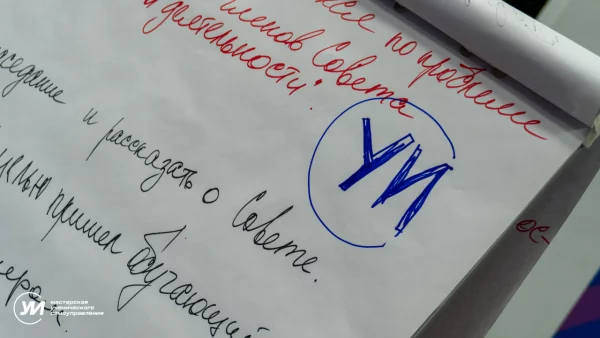 по проблеме
членов Совета
деятельности.
УИ
заседание и рассказать о Совете.
целью пришел обучающий
ос-
УИ
мастерская
ученического
самоуправления